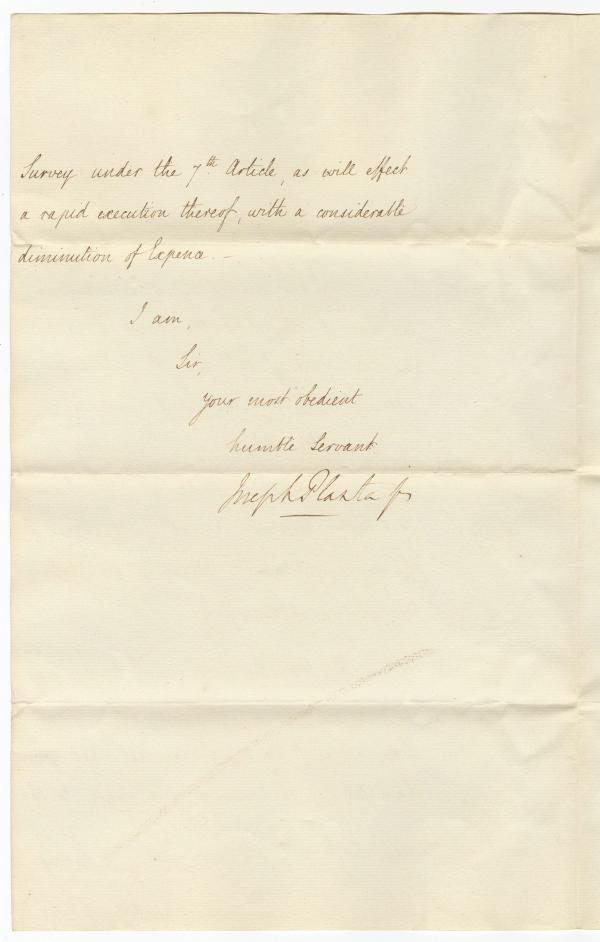 Survey under the 7th Article, as will effect
a rapid execution thereof, with a considerable
diminution of Expence. —
I am,
Sir,
your most obedient
humble Servant
Joseph Planta Jr